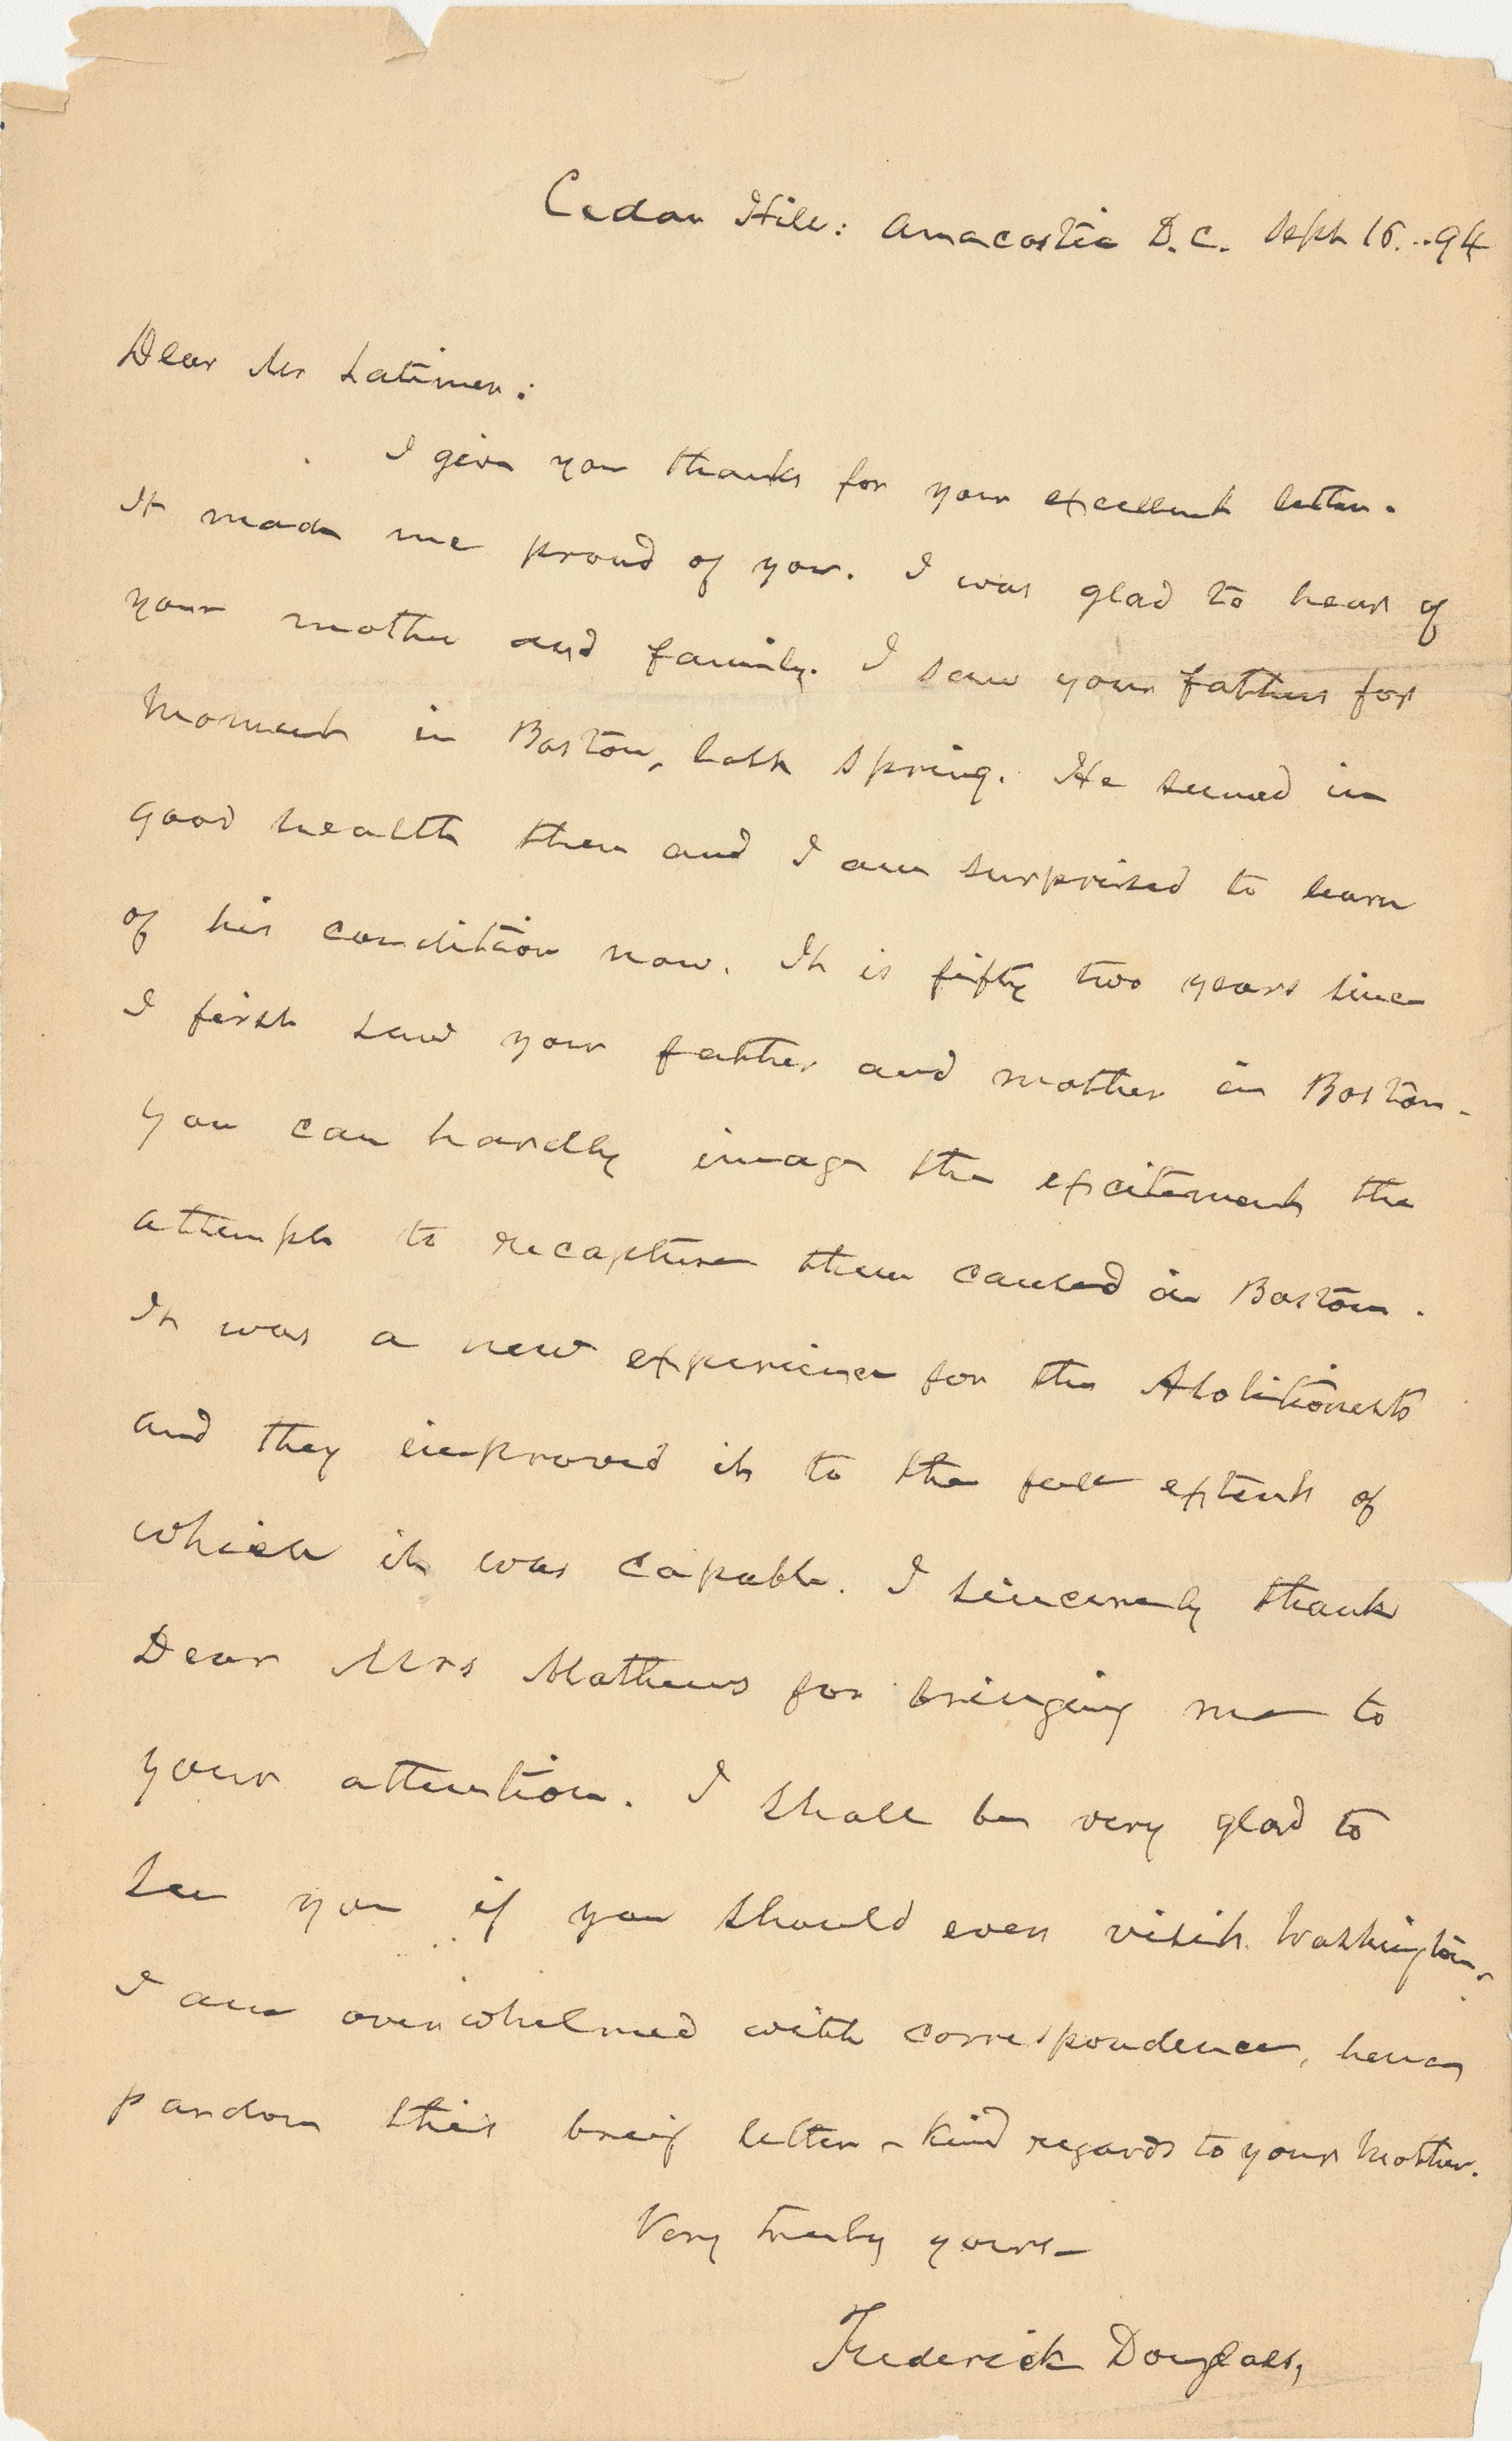 Cedar Hill: Anacostia D.C. Sept 16. ..94
Dear Mr Latimer:
I give you thanks for your excellent letter.
It made me proud of you. I was glad to hear of
your mother and family. I saw your father for
moment in Boston, last spring. He seemed in
good health then and I am surprised to learn
of his condition now. It is fifty two years since
I first saw your father and mother in Boston.
You can hardly image the excitement the
attempt to recapture them caused in Boston.
It was a new experience for the Abolitionests
and they improved it to the full extent of
which it was capable. I sincerely thank
Dear Mrs Mathews for bringing me to
your attention. I shall be very glad to
see you if you should ever visit Washington.
I am overwhelmed with correspondence, hence
pardon this breif letter - Kind regards to your Mother.
Very truly yours -
Frederick Douglass,